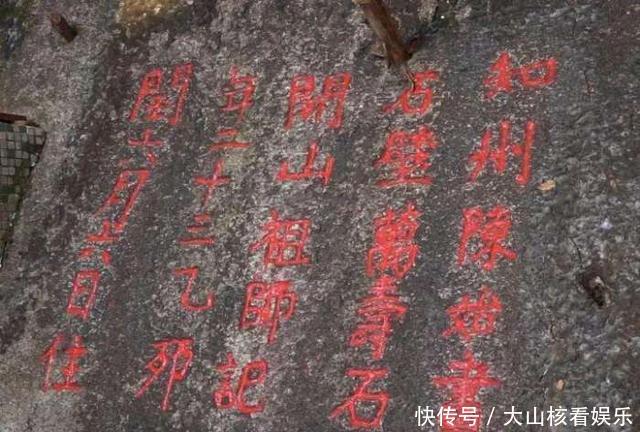 和州陳始書
石壁萬壽石
開山祖師記
年二十三乙卯
閏六月六日住
快传号／大山核看娱乐